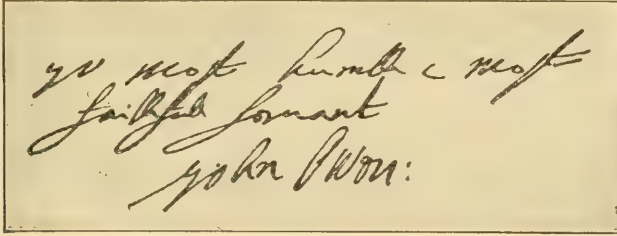 yr most humble & most
faithful servant
John Owen: